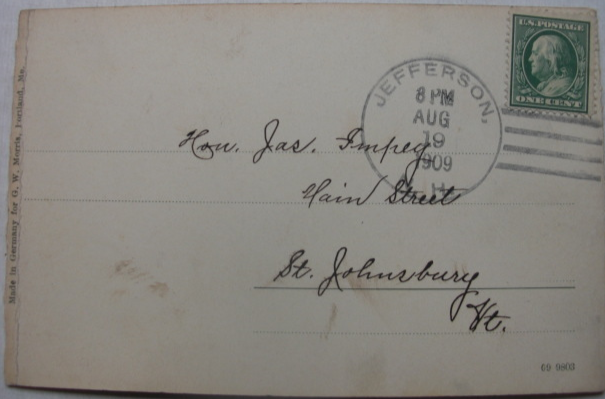 U.S. POSTAGE
ONE CENT
JEFFERSON,
8 PM
AUG
19
1909
N.H.
Hon. Jas. Impey
Main Street
St. Johnsbury
Vt.
Made in Germany for G. W. Morris, Portland, Me.
69 9803